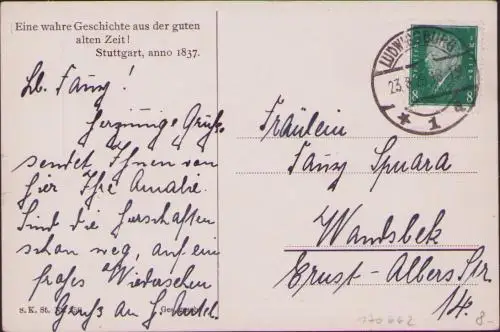 Eine wahre Geschichte aus der guten
alten Zeit!
Stuttgart, anno 1837.
Lb. Fanny!
Herzinnige Grüße
sendet Ihnen von
hier Ihre Amalie.
Sind die Herschaften
schon weg, auf ein
frohes Wiedersehen
Gruß an H.
S. K. St.
LUDWIGSBURG
23.
* 1
8 8
Fräulein
Fanny Spuara
Wandsbek
Ernst-Albers Str.
14.
8-